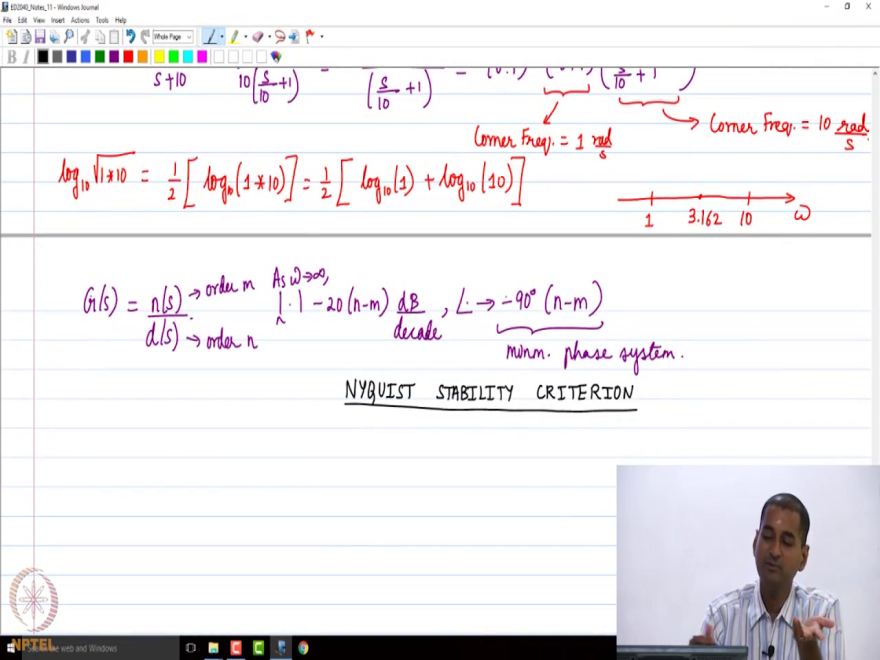 ED2040_Notes_11 - Windows Journal
File Edit View Insert Actions Tools Help
Whole Page
B I
s+10 10(s/10 +1) = (s/10 +1) = (0.1) (s/10 + 1)
Corner Freq. = 1 rad/s
Corner Freq. = 10 rad/s
log₁₀ √1*10 = 1/2 [ log₁₀(1*10) ] = 1/2 [ log₁₀(1) + log₁₀(10) ]
1 3.162 10 ω
As ω→∞,
G(s) = n(s)/d(s) → order m |·| - 20(n-m) dB/decade, ∠· → -90° (n-m)
→ order n
minm. phase system.
NYQUIST STABILITY CRITERION
NPTEL
the web and Windows